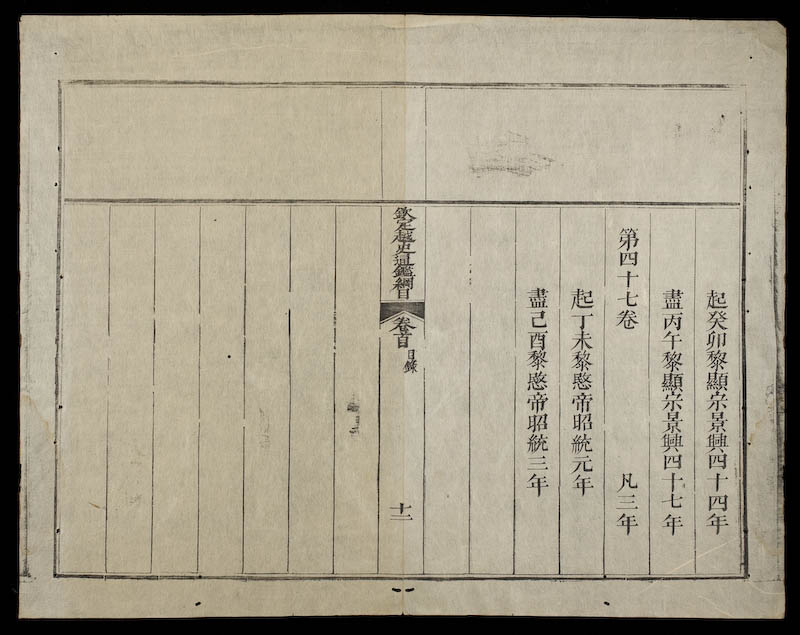 起癸卯黎顯宗景興四十四年
盡丙午黎顯宗景興四十七年
第四十七卷 凡三年
起丁未黎愍帝昭統元年
盡己酉黎愍帝昭統三年
欽定越史通鑑綱目 卷首 目錄 十二